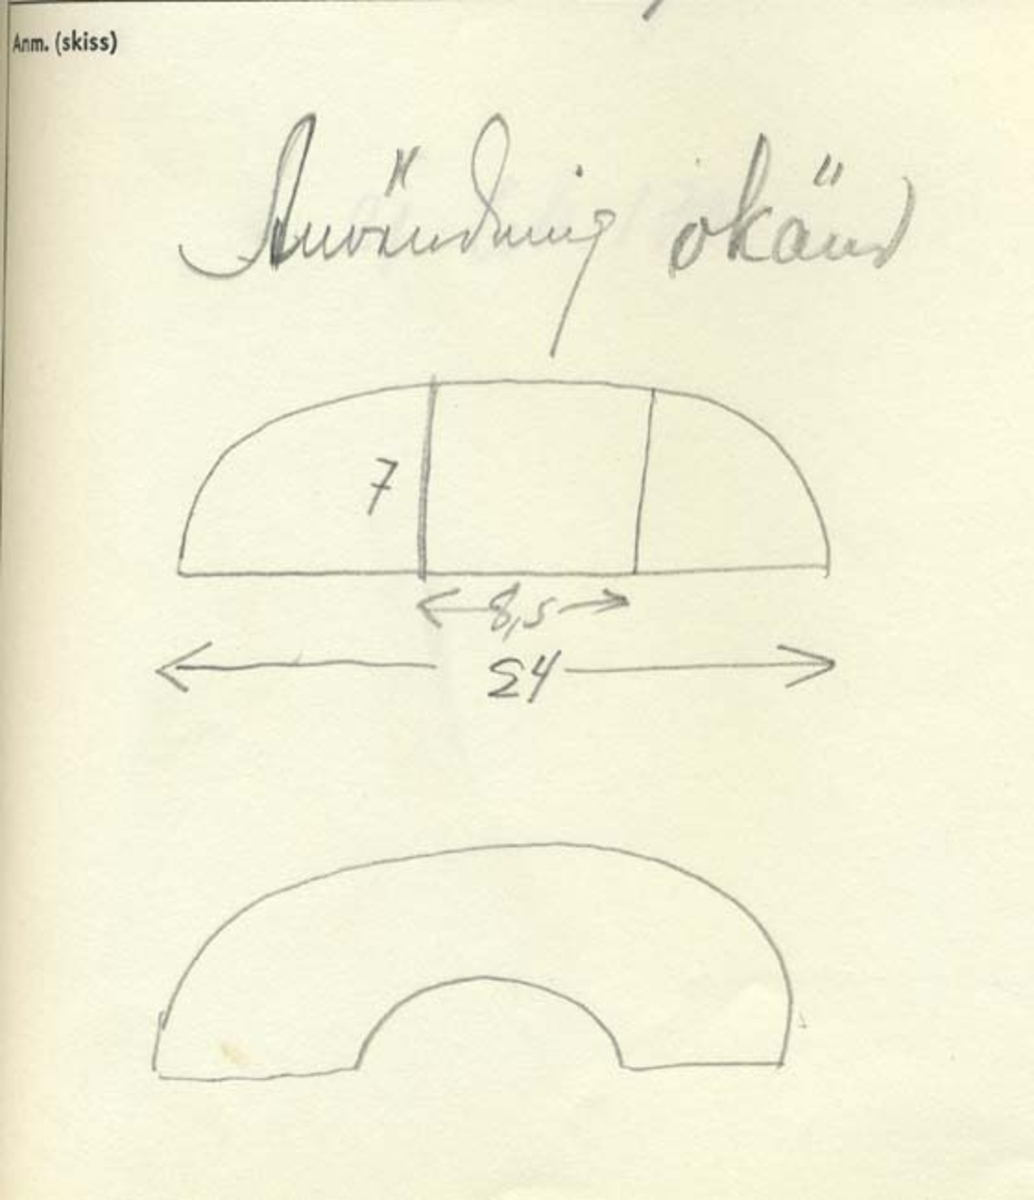 Anm. (skiss)
Användning okänd
7
8,5
24